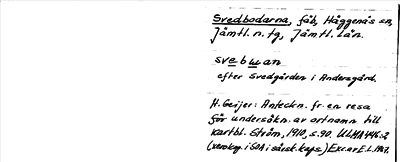 Svedbodarna, fäb, Häggenås sn,
Jämtl. n. tg, Jämtl. län.
svebuan
efter Svedgården i Andersgård.
H. Geijer: Anteckn. fr. en resa
för undersökn. av ortnamn till
kartbl. Ström, 1910, s. 90. ULMA 446:2
(xerokop. i SOA i särsk. kaps) Exc. av E.L. 1967.